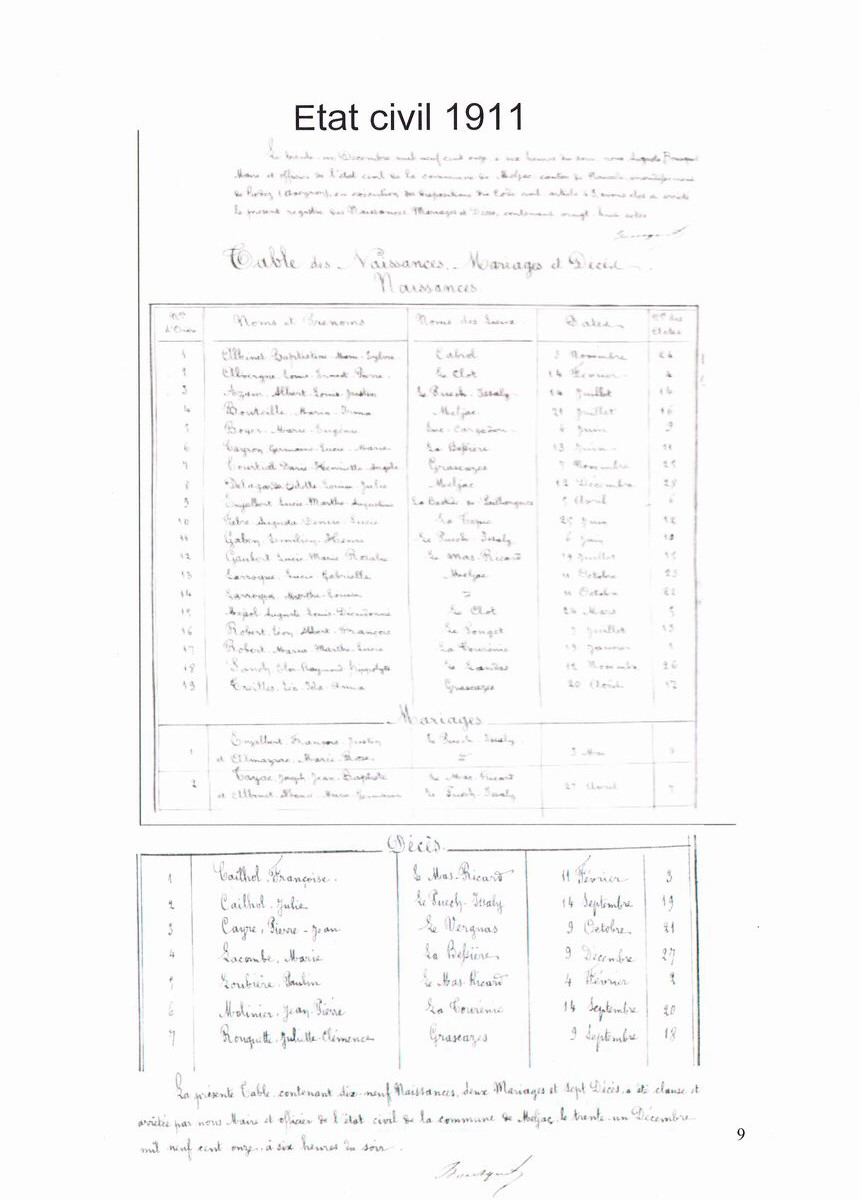 Etat civil 1911
Le trente-un Décembre mil neuf cent onze, à six heures du soir, nous Auguste Bousquet
Maire et officier de l'état civil de la commune de Meljac canton de Naucelle arrondissement
de Rodez (Aveyron), en exécution des dispositions du Code civil article avons clos et arrêté
le présent registre des Naissances Mariages et Décès, contenant vingt-huit actes
Bousquet
Table des Naissances, Mariages et Décès
Naissances
Nos d'Ordre Noms et Prénoms Noms des Lieux Dates Nos des Actes
1 Albinet Baptistine Cabrol 3 Novembre 24
2 Alvergne Louis Ernest Pierre Le Clot 14 Février 4
3 Azam Albert Louis Justin Le Puech-Issaly 14 Juillet 14
4 Bouteille Maria Irma Meljac 21 Juillet 16
5 Boyer Marie Juin 9
6 Cayron Germaine Lucie Marie La Bessière 13 Juin 11
7 Henriette Angèle Grascazes 7 Novembre 25
8 Odette Louise Julie Meljac 12 Décembre 28
9 Enjalbert Lucie Marthe Augustine La Bastié Avril 6
10 Fabre Augusta Denise Lucie 25 Juin 12
11 Gabon Henri Le Puech-Issaly 6 Juin 10
12 Gaubert Lucie Marie Rosalie Le Mas-Ricard 17 Juillet 15
13 Larroque Lucie Gabrielle Meljac 11 Octobre 23
14 Larroque Marthe Louise = 11 Octobre 22
15 Auguste Louis Dieudonné Le Clot 24 Mars 5
16 Robert Léon Albert François Le Pouget 7 Juillet 13
17 Robert Maria Marthe Lucie La Tourenie 19 Janvier 1
18 Raymond Hippolyte Le Landas 12 Novembre 26
19 Treilles Léa Ida Anna Grascazes 20 Août 17
Mariages
1 Enjalbert François Justin Le Puech-Issaly
et Almayrac Marie Rose = 3 Mai 8
2 Tayac Joseph Jean Baptiste Le Mas-Ricard
et Albinet Marie Germaine Le Puech-Issaly 27 Avril 7
Décès
1 Cailhol Françoise Le Mas-Ricard 11 Février 3
2 Cailhol Julie Le Puech-Issaly 14 Septembre 19
3 Cayre, Pierre-Jean Le Vergnas 9 Octobre 21
4 Lacombe, Marie La Bessière 9 Décembre 27
5 Loubière Paulin Le Mas-Ricard 4 Février 2
6 Molinier, Jean Pierre La Tourenie 14 Septembre 20
7 Rouquette Juliette-Clémence Grascazes 9 Septembre 18
La présente Table, contenant dix-neuf Naissances, deux Mariages et sept Décès, a été clause et
arrêtée par nous Maire et officier de l'état civil de la commune de Meljac, le trente-un Décembre
mil neuf cent onze, à six heures du soir.
Bousquet
9